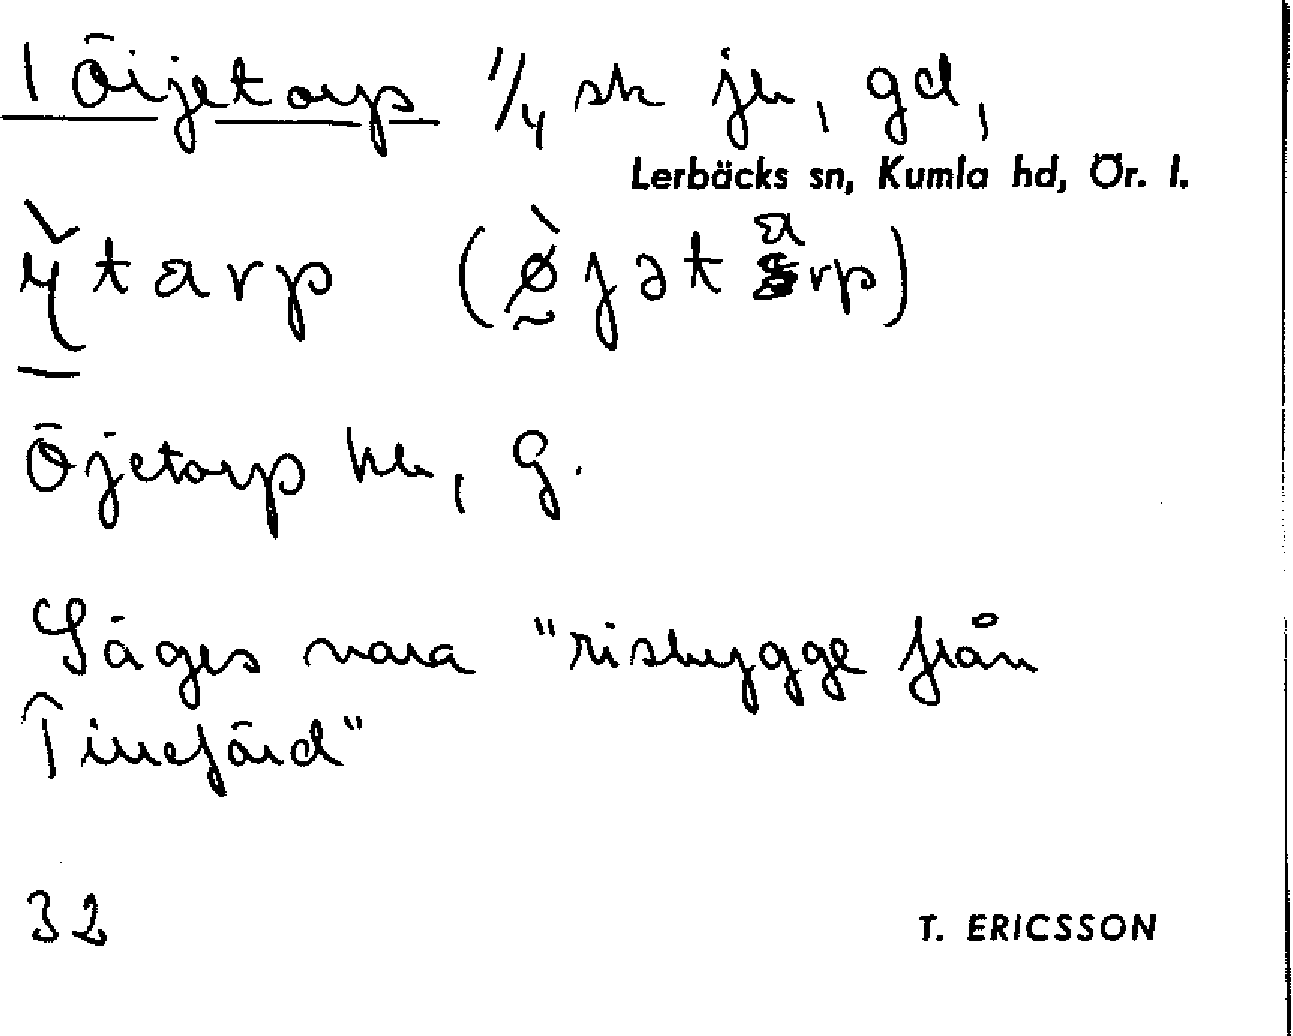 1 Öijetorp 1/4 sk jb, gd,
Lerbäcks sn, Kumla hd, Ör. l.
ỳtarp (ø̀jətarp)
Öjetorp kb, G.
Säges vara "risbygge från
Tinefärd"
32
T. ERICSSON